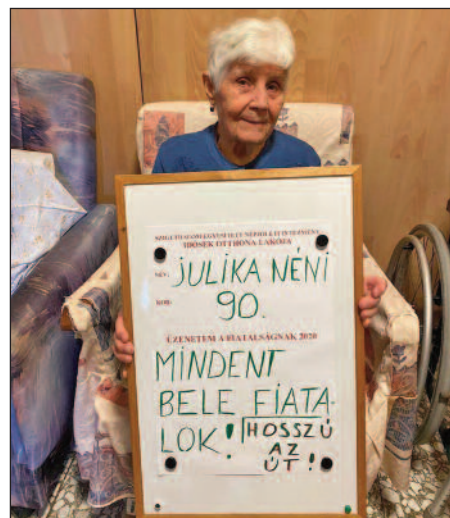 IDŐSEK OTTHONA LAKÓJA
NÉV: JULIKA NÉNI
KOR: 90.
ÜZENETEM A FIATALSÁGNAK 2020
MINDENT
BELE FIATA-
LOK! HOSSZÚ
AZ
ÚT!